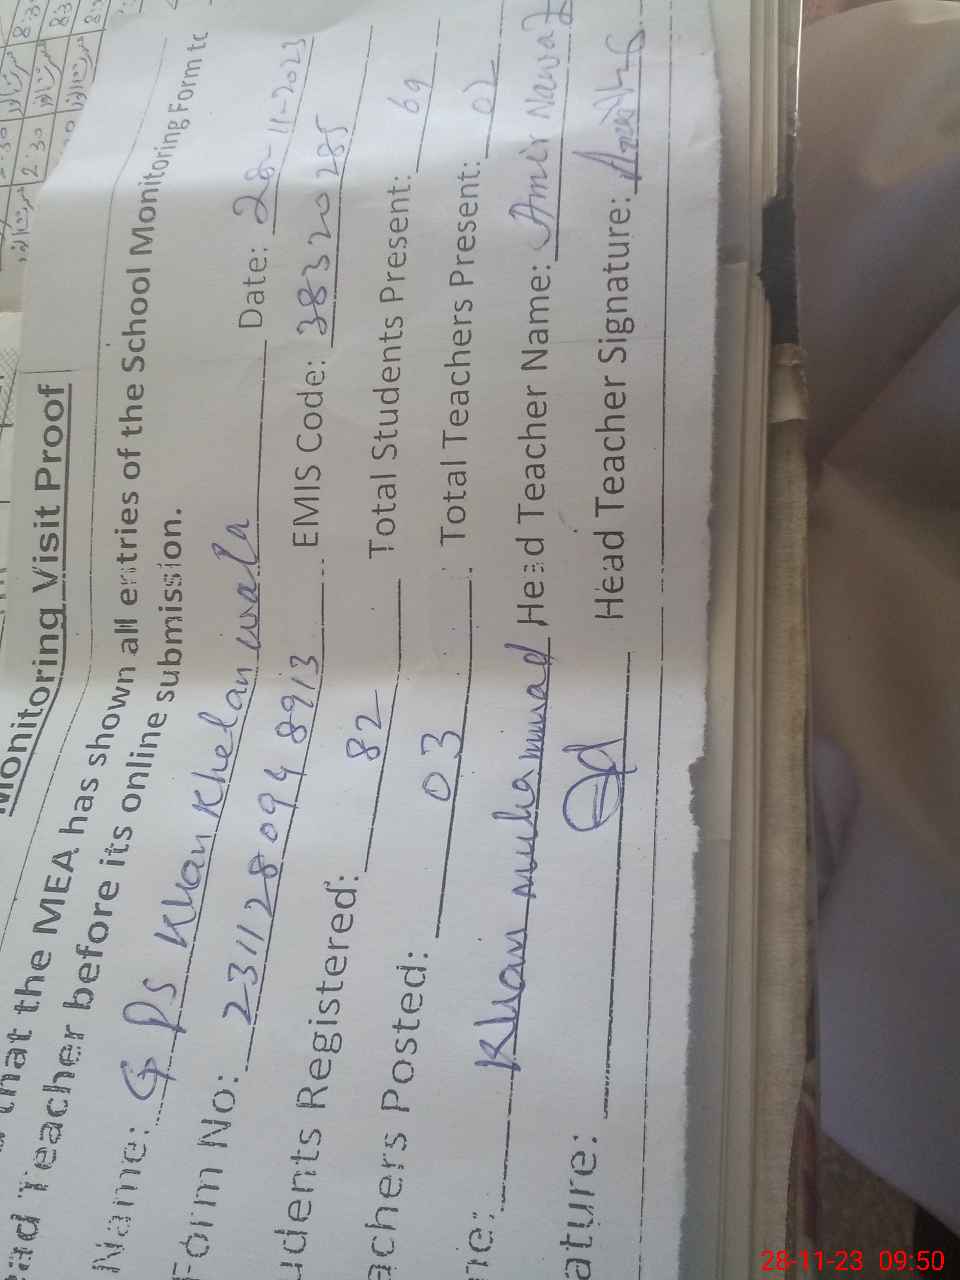 Monitoring Visit Proof
that the MEA has shown all entries of the School Monitoring Form to
Teacher before its online submission.
Name: GPS Khan Khelan wala Date: 28-11-2023
Form No: 2311280948913 EMIS Code: 38320285
Students Registered: 82 Total Students Present: 69
achers Posted: 03 Total Teachers Present: 02
me: Khan muhammad Head Teacher Name: Amir Nawaz
ature: Head Teacher Signature:
28-11-23 09:50